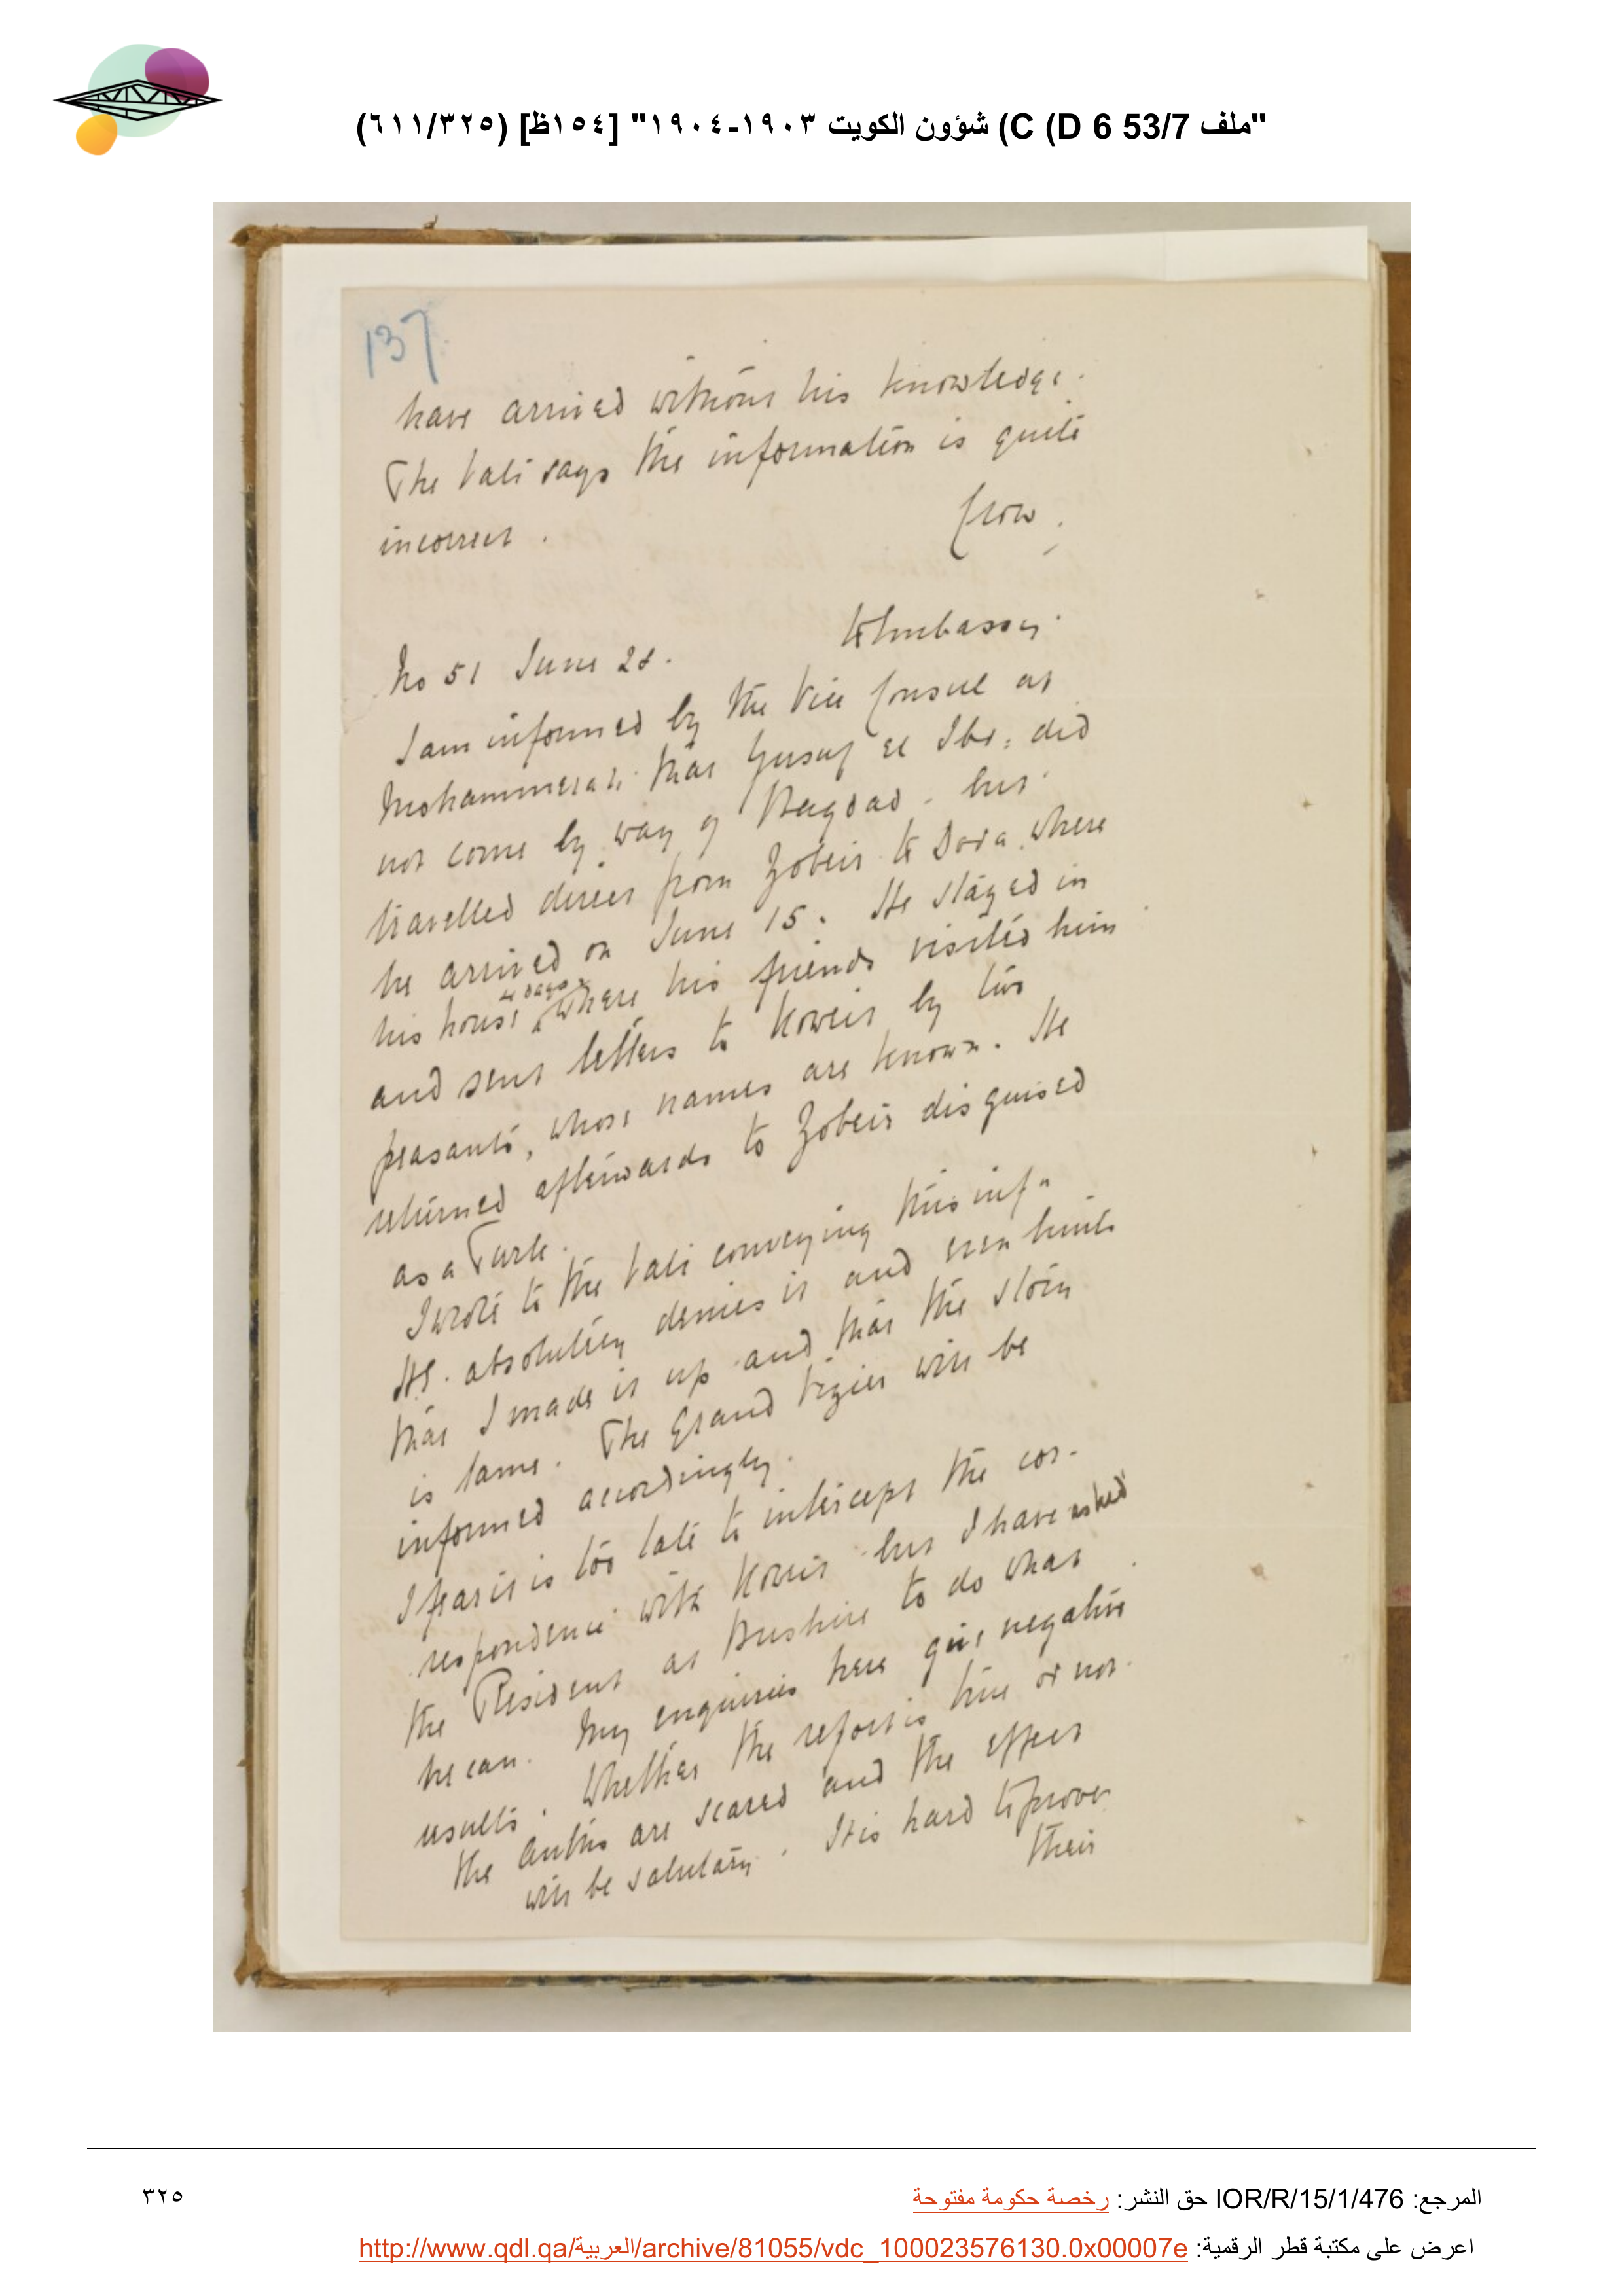 "ملف 53/7 C (D 6) شؤون الكويت ١٩٠٣-١٩٠٤" [١٥٤ظ] (٦١١/٣٢٥)
137
have arrived without his knowledge.
The Vali says the information is quite
incorrect.
Crow.
To Embassy.
No 51 June 28.
I am informed by the Vice Consul at
Mohammerah that Yusuf el Ibr: did
not come by way of Bagdad - but
travelled direct from Zobeir to Dora where
he arrived on June 15. He stayed in
his house 4 days where his friends visited him
and sent letters to Koweit by two
peasants, whose names are known. He
returned afterwards to Zobeir disguised
as a Turk.
I wrote to the Vali conveying this inf n
HE. absolutely denies it and even hints
that I made it up and that the story
is lame. The Grand Vizier will be
informed accordingly.
I fear it is too late to intercept the cor-
respondence with Koweit but I have asked
the Resident at Bushire to do what
he can. My enquiries here give negative
results. Whether the report is true or not
the auth's are scared and the effect
will be salutary. It is hard to prove
their
المرجع: IOR/R/15/1/476 حق النشر: رخصة حكومة مفتوحة
٣٢٥
اعرض على مكتبة قطر الرقمية: http://www.qdl.qa/العربية/archive/81055/vdc_100023576130.0x00007e